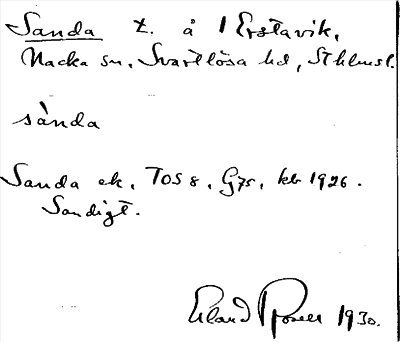 Sanda t. å 1 Erstavik,
Nacka sn, Svartlösa hd, Sthlmsl.
sànda
Sanda ek. TOS 8, G75, kb 1926.
Sandigt.
Erland Rosell 1930.